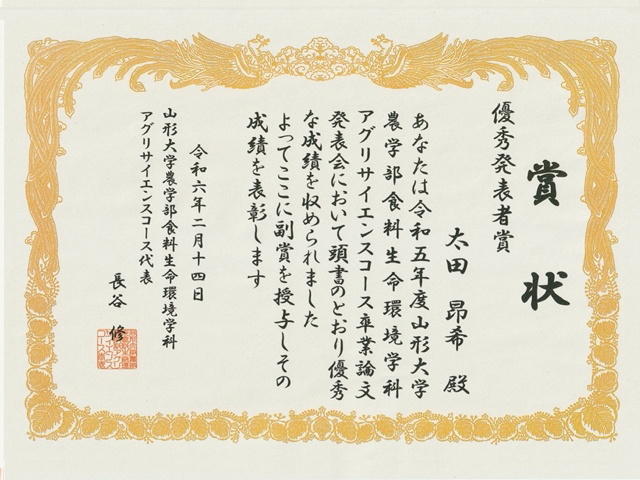 賞状
優秀発表者賞
太田 昂希 殿
あなたは令和五年度山形大学
農学部食料生命環境学科
アグリサイエンスコース卒業論文
発表会において頭書のとおり優秀
な成績を収められました
よってここに副賞を授与しその
成績を表彰します
令和六年二月十四日
山形大学農学部食料生命環境学科
アグリサイエンスコース代表
長谷 修